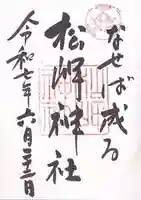 なせば成る
松陰神社
令和七年六月二十二日